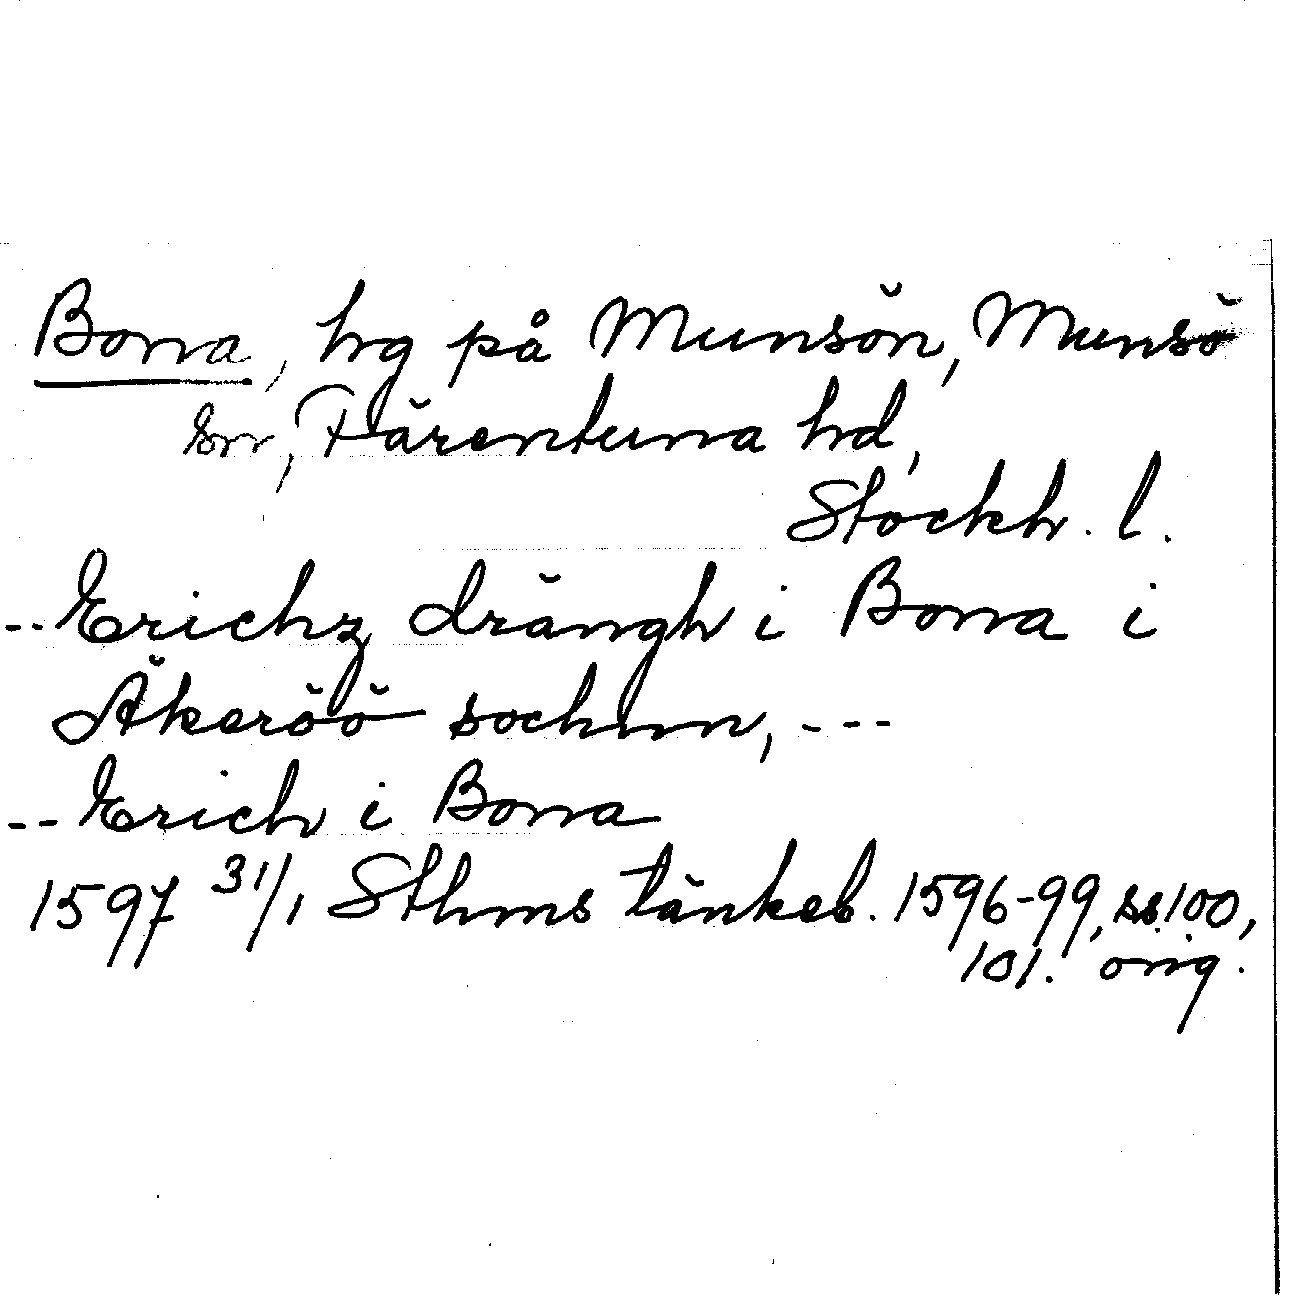 Bona, hg på Munsön, Munsö
sn, Färentuna hd,
Stockh. l.
-- Erichz drängh i Bona i
Äkeröö sochnn, ---
-- Erich i Bona
1597 31/1 Sthms tänkeb. 1596-99, ss. 100,
101. orig.